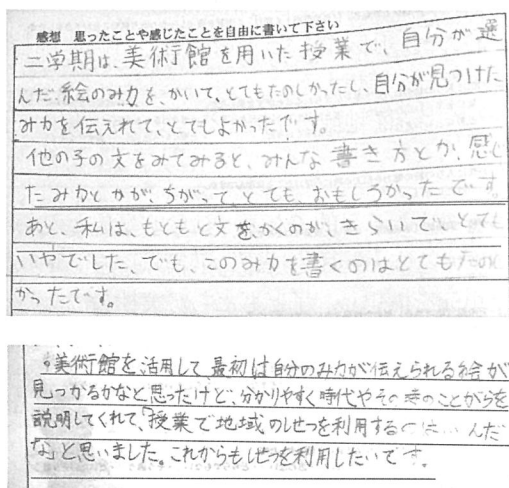 感想 思ったことや感じたことを自由に書いて下さい
二学期は、美術館を用いた授業で、自分が選
んだ絵のみ力を、かいて、とてもたのしかったし、自分が見つけた
み力を伝えれて、とてもよかったです。
他の子の文をみてみると、みんな書き方とか、感じ
たみ力とかが、ちがって、とても、おもしろかったです。
あと、私は、もともと文を、かくのが、きらいで、とても
いやでした。でも、このみ力を書くのはとてもたのし
かったです。
・美術館を活用して、最初は自分のみ力が伝えられる絵が
見つかるかなと思ったけど、分かりやすく時代やその時のことがらを
説明してくれて、「授業で地域のしせつを利用する んだ
な」と思いました。これからもしせつを利用したいです。